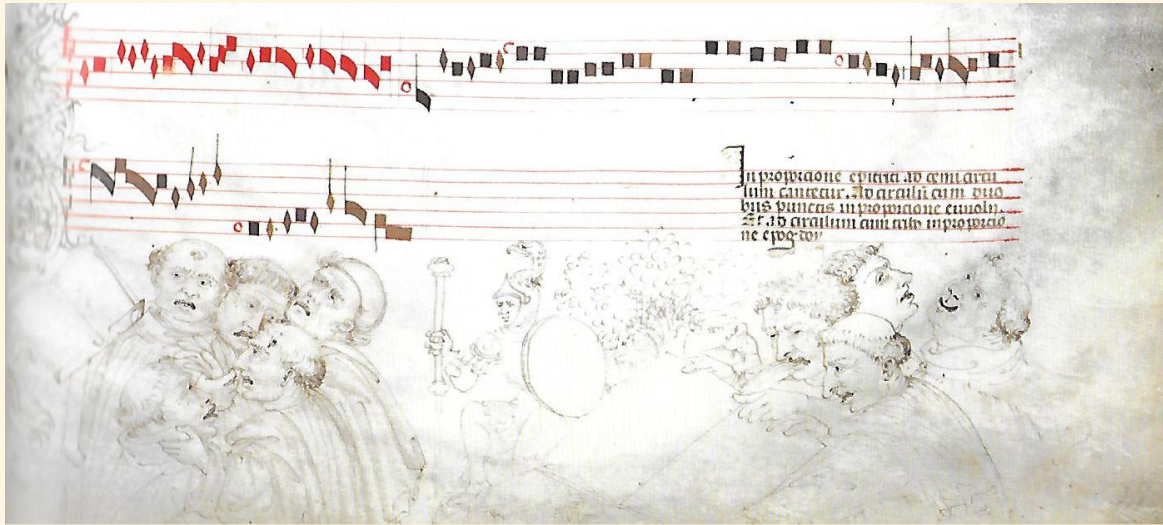 In proporcione epitriti ad cemi circu
lum cantetur. Ad circulū cum duo
bus punctis in proporcione emiolii.
Et ad circulum cum in proporcio
ne epog doy